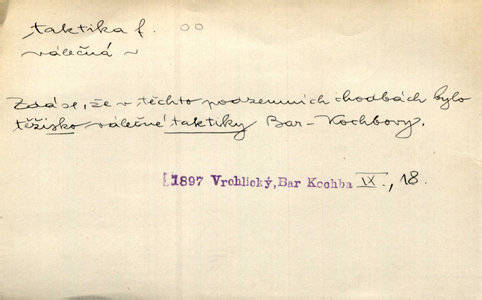 taktika f. oo
válečná ~
Zdá se, že v těchto podzemních chodbách bylo
těžisko válečné taktiky Bar-Kochbovy.
[1897 Vrchlický, Bar Kochba IX., 18.